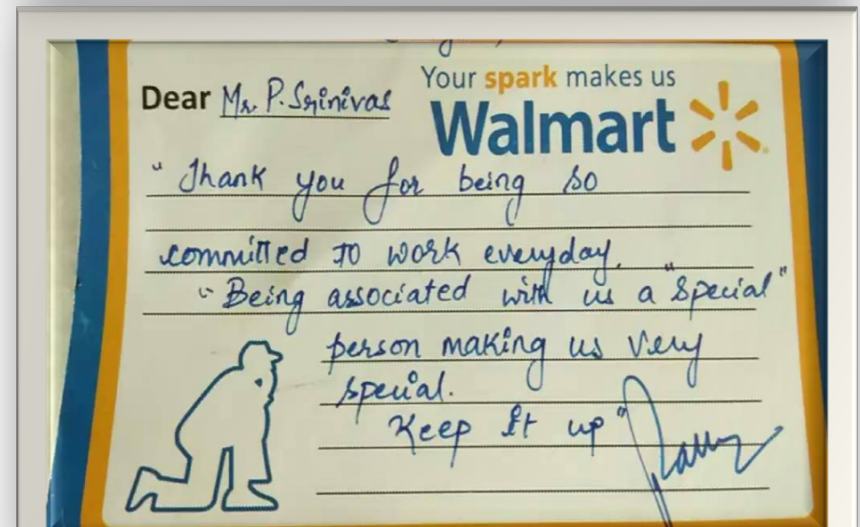 Dear Mr. P. Srinivas
Your spark makes us
Walmart
"Thank you for being so
committed to work everyday.
"Being associated with us a "Special"
person making us very
special.
Keep it up"